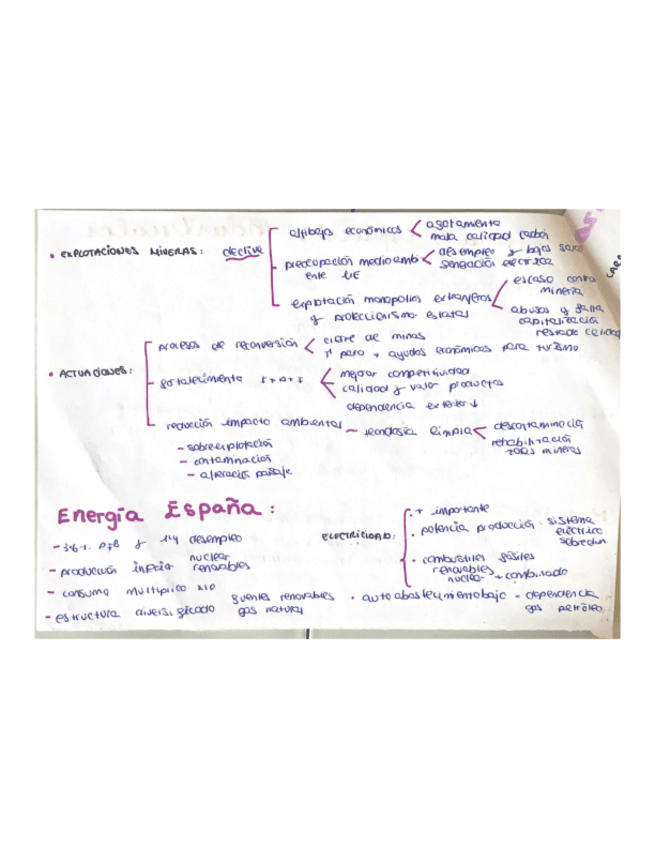 • EXPLOTACIONES MINERAS: declive
altibajos económicos < agotamiento
mala calidad carbón
preocupación medioamb < desempleo y bajos
ente UE
explotación monopolios extranjeros < escaso
minería
y proteccionismo estatal
abusos y falta
capitalización
• ACTUACIONES:
procesos de reconversión < cierre de minas
pero + ayudas económicas para turismo
fortalecimiento I+D+I < mejorar competitividad
calidad y valor productos
dependencia exterior ↓
reducción impacto ambiental — tecnología limpia < descontaminación
rehabilitación
zonas mineras
- sobreexplotación
- contaminación
- alteración paisaje
Energía España:
- 3'6% PIB y 1'4 desempleo
- producción inferior nuclear
renovables
- consumo multiplico x10
- estructura diversificado fuentes renovables
gas natural
ELECTRICIDAD:
• + importante
• potencia producción: sistema
eléctrico
• combustibles fósiles
renovables
nuclear + combinado
• autoabastecimiento bajo = dependencia
gas petróleo